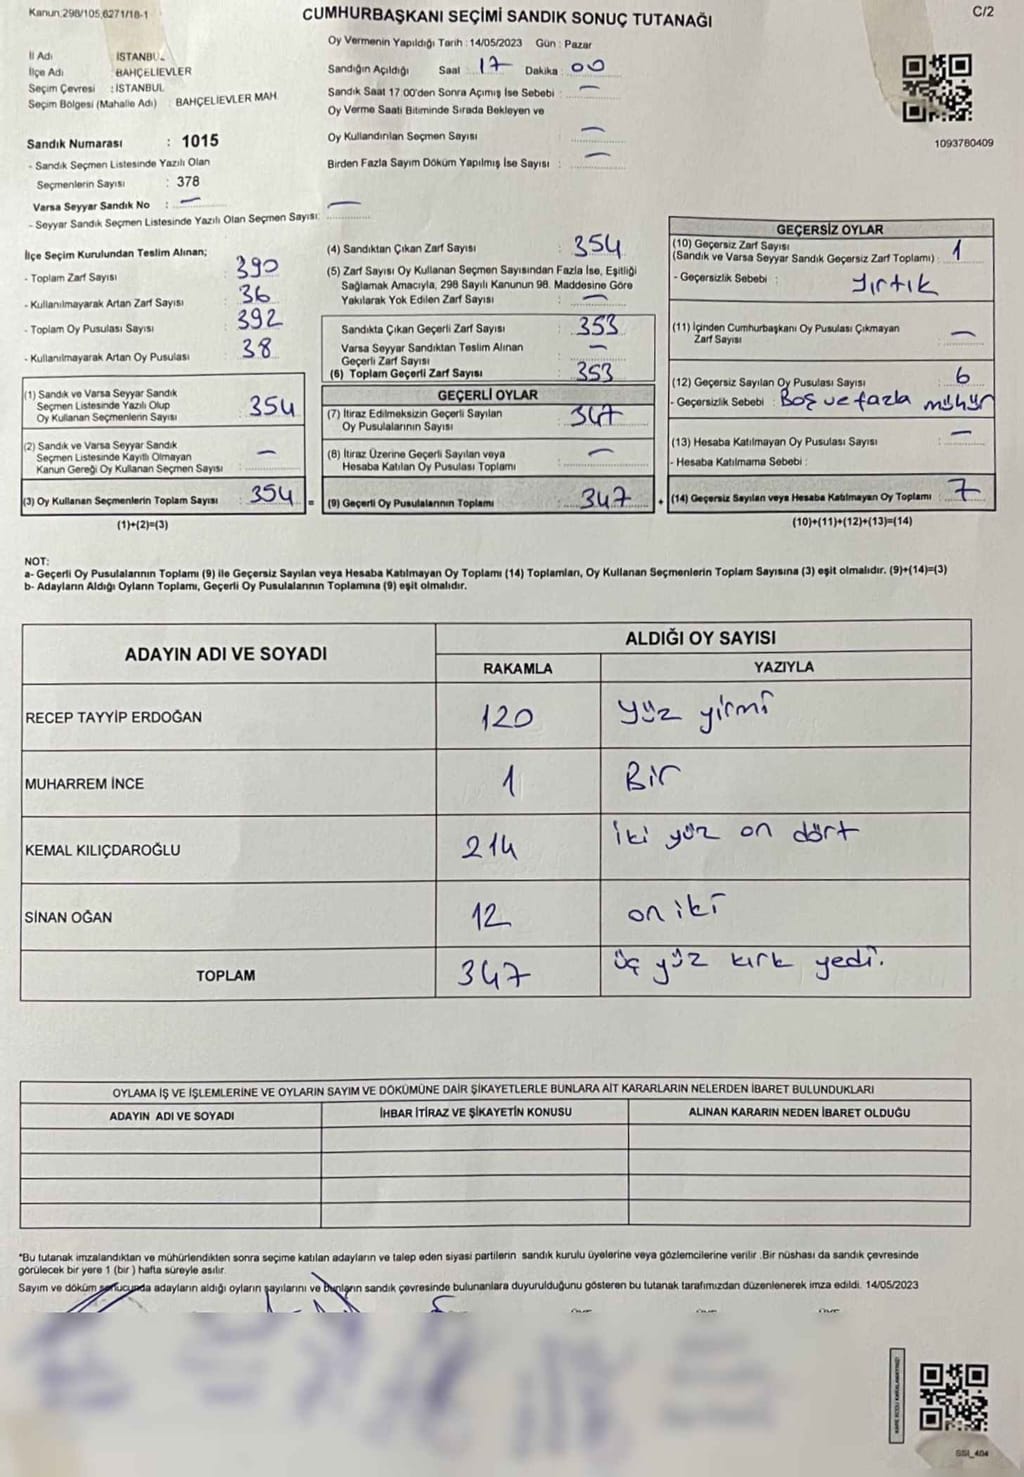 Kanun 298/105,6271/18-1
CUMHURBAŞKANI SEÇİMİ SANDIK SONUÇ TUTANAĞI
C/2
Oy Vermenin Yapıldığı Tarih : 14/05/2023 Gün : Pazar
İl Adı İSTANBUL
İlçe Adı : BAHÇELİEVLER
Seçim Çevresi : İSTANBUL
Seçim Bölgesi (Mahalle Adı) : BAHÇELİEVLER MAH.
Sandık Numarası : 1015
- Sandık Seçmen Listesinde Yazılı Olan
Seçmenlerin Sayısı : 378
Varsa Seyyar Sandık No : —
- Seyyar Sandık Seçmen Listesinde Yazılı Olan Seçmen Sayısı: —
Sandığın Açıldığı Saat 17 Dakika 00
Sandık Saat 17:00'den Sonra Açımış İse Sebebi : —
Oy Verme Saati Bitiminde Sırada Bekleyen ve
Oy Kullandırılan Seçmen Sayısı —
Birden Fazla Sayım Döküm Yapılmış İse Sayısı : —
1093780409
İlçe Seçim Kurulundan Teslim Alınan;
- Toplam Zarf Sayısı : 390
- Kullanılmayarak Artan Zarf Sayısı : 36
- Toplam Oy Pusulası Sayısı : 392
- Kullanılmayarak Artan Oy Pusulası : 38
(1) Sandık ve Varsa Seyyar Sandık
Seçmen Listesinde Yazılı Olup
Oy Kullanan Seçmenlerin Sayısı : 354
(2) Sandık ve Varsa Seyyar Sandık
Seçmen Listesinde Kayıtlı Olmayan
Kanun Gereği Oy Kullanan Seçmen Sayısı : —
(3) Oy Kullanan Seçmenlerin Toplam Sayısı : 354 =
(1)+(2)=(3)
(4) Sandıktan Çıkan Zarf Sayısı : 354
(5) Zarf Sayısı Oy Kullanan Seçmen Sayısından Fazla İse, Eşitliği
Sağlamak Amacıyla, 298 Sayılı Kanunun 98. Maddesine Göre
Yakılarak Yok Edilen Zarf Sayısı : —
Sandıkta Çıkan Geçerli Zarf Sayısı : 353
Varsa Seyyar Sandıktan Teslim Alınan
Geçerli Zarf Sayısı : —
(6) Toplam Geçerli Zarf Sayısı : 353
GEÇERLİ OYLAR
(7) İtiraz Edilmeksizin Geçerli Sayılan
Oy Pusulalarının Sayısı : 347
(8) İtiraz Üzerine Geçerli Sayılan veya
Hesaba Katılan Oy Pusulası Toplamı : —
(9) Geçerli Oy Pusulalarının Toplamı : 347 +
GEÇERSİZ OYLAR
(10) Geçersiz Zarf Sayısı
(Sandık ve Varsa Seyyar Sandık Geçersiz Zarf Toplamı) : 1
- Geçersizlik Sebebi : Yırtık
(11) İçinden Cumhurbaşkanı Oy Pusulası Çıkmayan
Zarf Sayısı : —
(12) Geçersiz Sayılan Oy Pusulası Sayısı : 6
- Geçersizlik Sebebi : Boş ve fazla mühür
(13) Hesaba Katılmayan Oy Pusulası Sayısı : —
- Hesaba Katılmama Sebebi :
(14) Geçersiz Sayılan veya Hesaba Katılmayan Oy Toplamı : 7
(10)+(11)+(12)+(13)=(14)
NOT:
a- Geçerli Oy Pusulalarının Toplamı (9) ile Geçersiz Sayılan veya Hesaba Katılmayan Oy Toplamı (14) Toplamları, Oy Kullanan Seçmenlerin Toplam Sayısına (3) eşit olmalıdır. (9)+(14)=(3)
b- Adayların Aldığı Oyların Toplamı, Geçerli Oy Pusulalarının Toplamına (9) eşit olmalıdır.
ADAYIN ADI VE SOYADI
ALDIĞI OY SAYISI
RAKAMLA YAZIYLA
RECEP TAYYİP ERDOĞAN 120 yüz yirmi
MUHARREM İNCE 1 Bir
KEMAL KILIÇDAROĞLU 214 iki yüz on dört
SİNAN OĞAN 12 on iki
TOPLAM 347 üç yüz kırk yedi.
OYLAMA İŞ VE İŞLEMLERİNE VE OYLARIN SAYIM VE DÖKÜMÜNE DAİR ŞİKAYETLERLE BUNLARA AİT KARARLARIN NELERDEN İBARET BULUNDUKLARI
ADAYIN ADI VE SOYADI İHBAR İTİRAZ VE ŞİKAYETİN KONUSU ALINAN KARARIN NEDEN İBARET OLDUĞU
*Bu tutanak imzalandıktan ve mühürlendikten sonra seçime katılan adayların ve talep eden siyasi partilerin sandık kurulu üyelerine veya gözlemcilerine verilir .Bir nüshası da sandık çevresinde
görülecek bir yere 1 (bir ) hafta süreyle asılır.
Sayım ve döküm sonucunda adayların aldığı oyların sayılarını ve bunların sandık çevresinde bulunanlara duyurulduğunu gösteren bu tutanak tarafımızdan düzenlenerek imza edildi. 14/05/2023
SSI_404